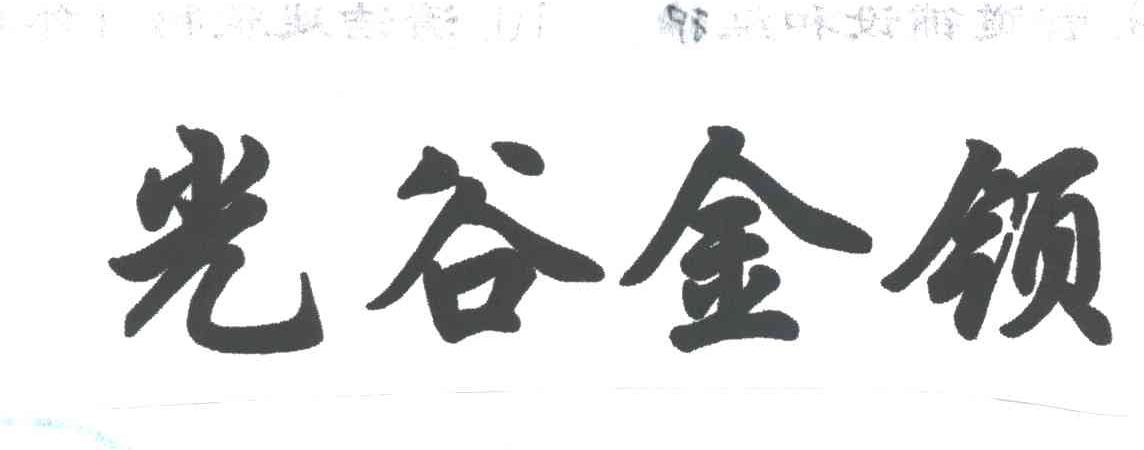 光谷金领